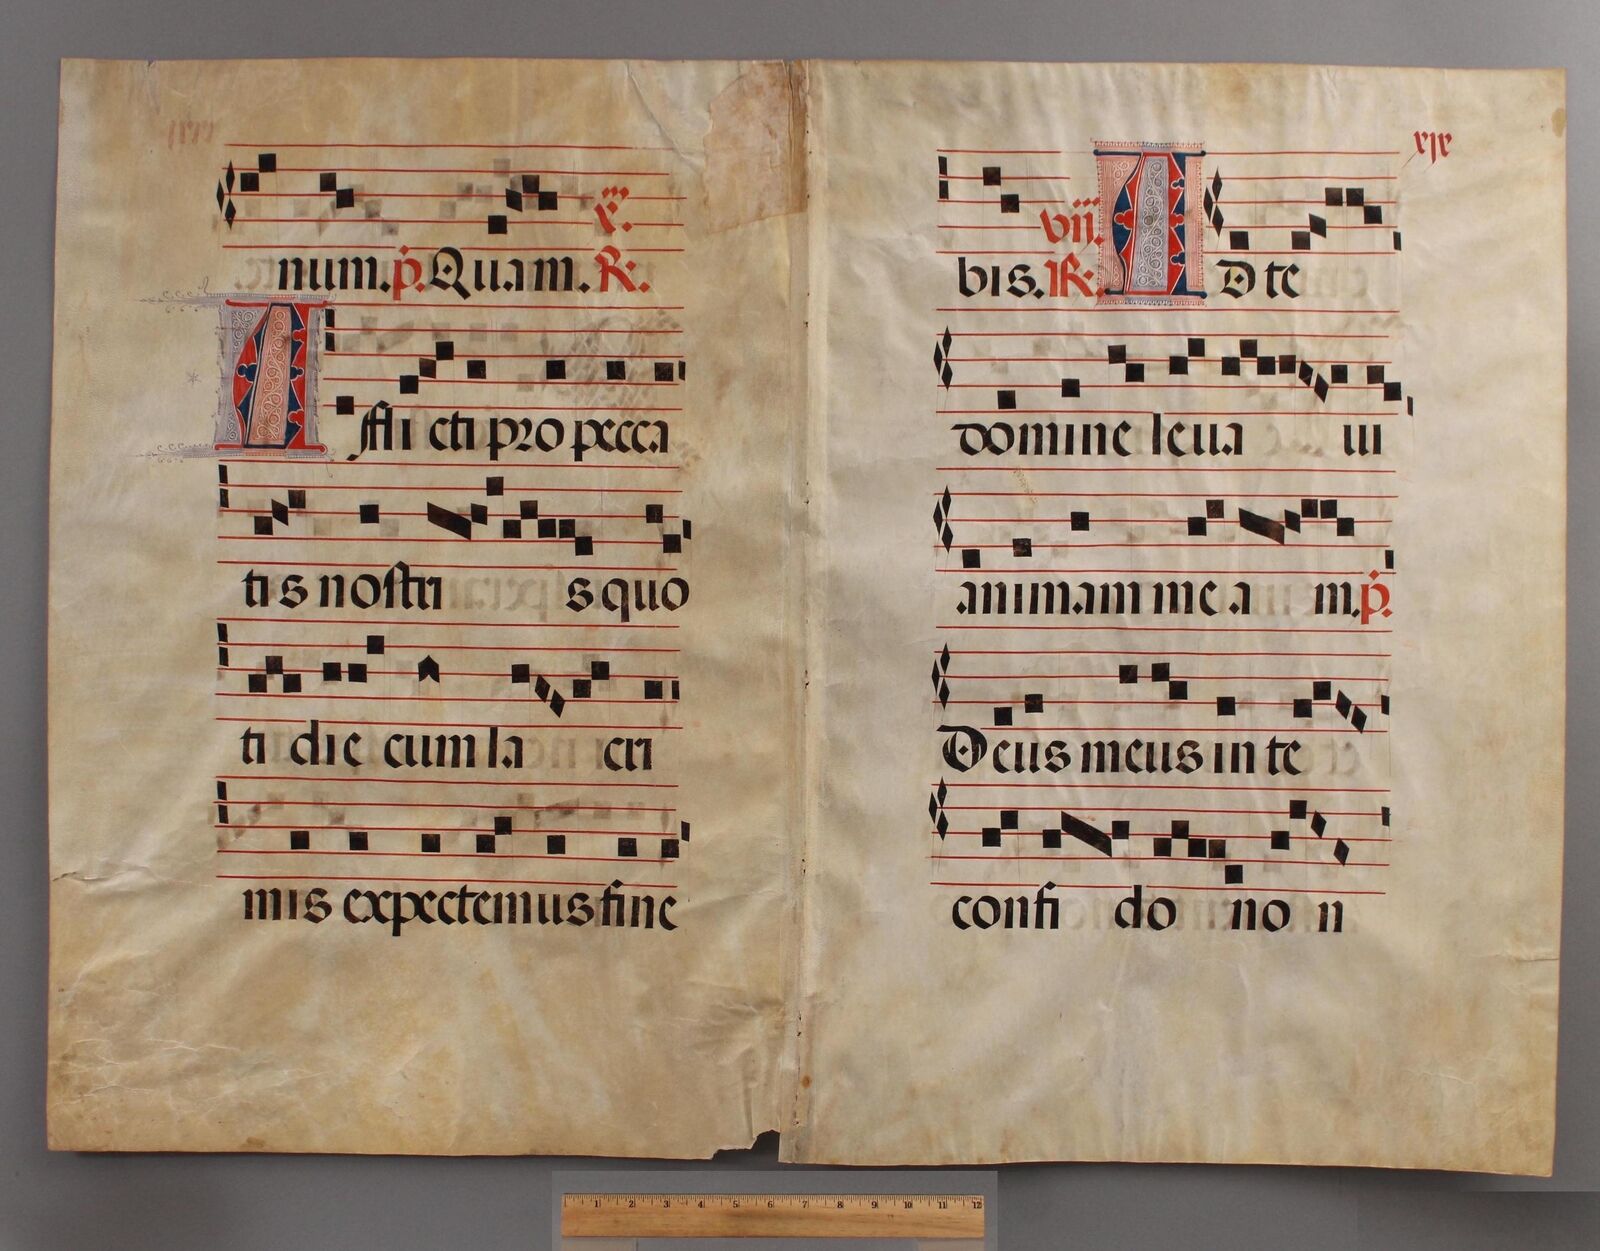 num. p. Quam. R.
x.
A fflicti pro pecca
tis nostris quo
ti die cum la cri
mis expectemus fine
xix
vii.
bis. R. A D te
domine leua ui
animam mea m. p.
Deus meus in te
confi do no n
1 2 3 4 5 6 7 8 9 10 11 12